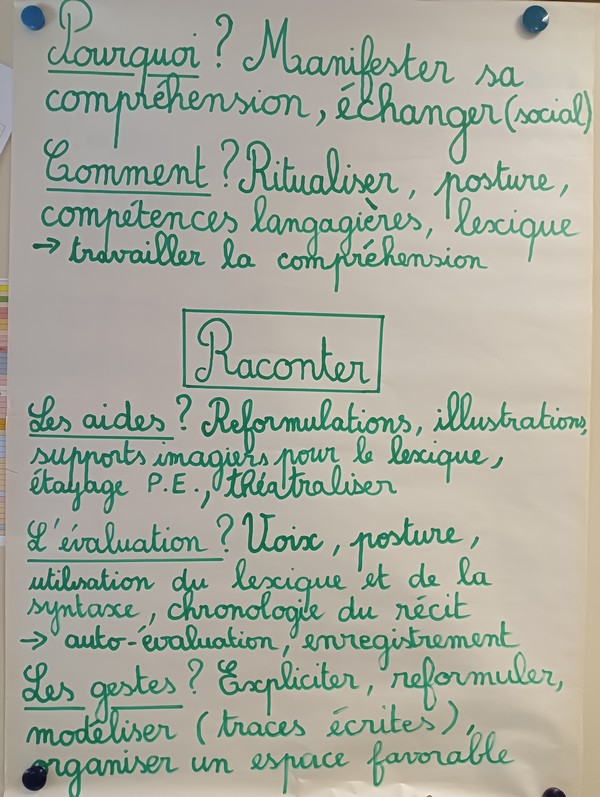 Pourquoi ? Manifester sa
compréhension, échanger (social)
Comment ? Ritualiser, posture,
compétences langagières, lexique
→ travailler la compréhension
Raconter
Les aides ? Reformulations, illustrations,
supports imagiers pour le lexique,
étayage P.E., théatraliser
L'évaluation ? Voix, posture,
utilisation du lexique et de la
syntaxe, chronologie du récit
→ auto-évaluation, enregistrement
Les gestes ? Expliciter, reformuler,
modéliser (traces écrites),
organiser un espace favorable